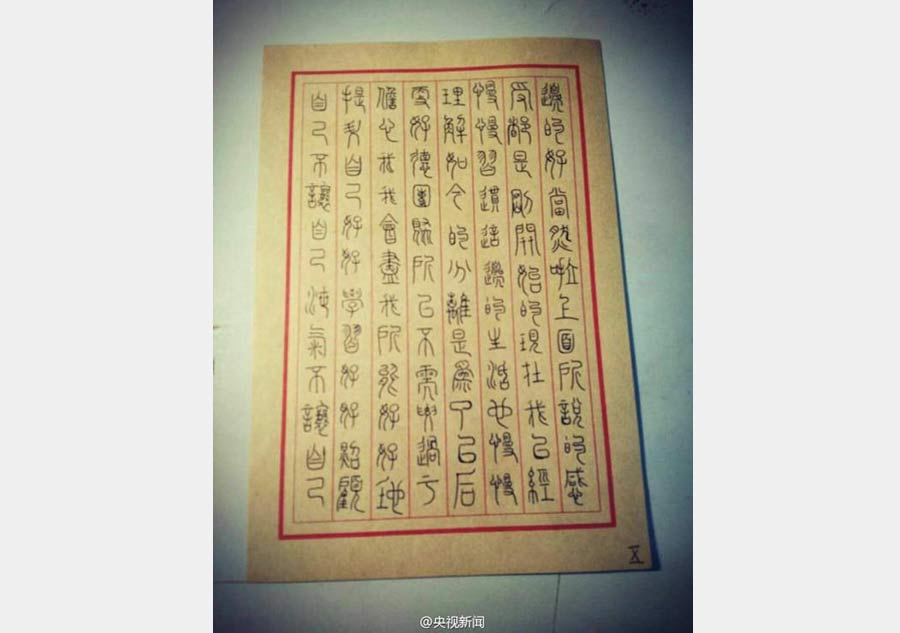 邊的好當然啦上面所說的感
受都是剛開始的現在我已經
慢慢習慣這邊的生活也慢慢
理解如今的分離是為了以后
更好德團聚所以不需要過于
擔心我我會盡我所能好好地
提自己好好學習好好照顧
自己不讓自己泄氣不讓自己
五
@央视新闻